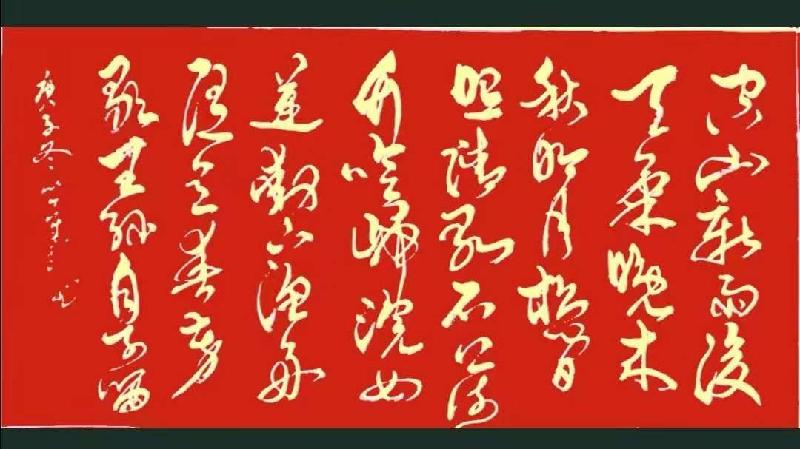 空山新雨後
天氣晚来
秋明月松間
照清泉石上流
竹喧歸浣女
蓮動下漁舟
随意春芳
歇王孫自可留
庚子冬